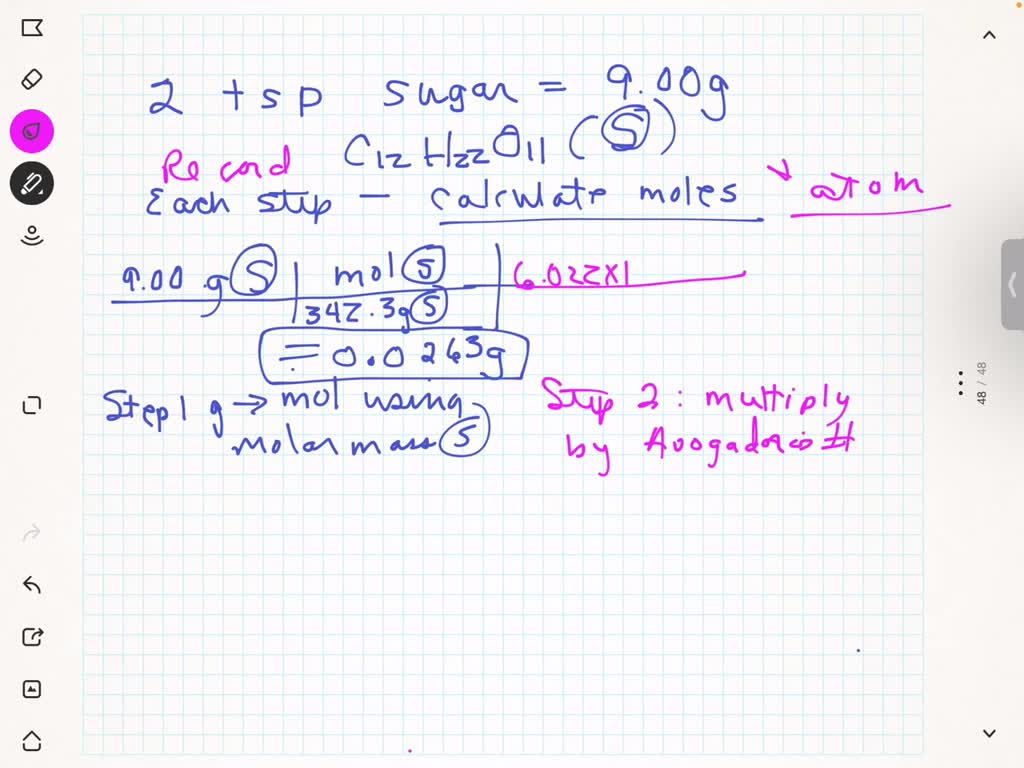 2 tsp sugar = 9.00g
C12H22O11 (S)
Record
Each step - calculate moles ↓ atom
9.00 g S | mol S | 6.022x1
342.3g S
= 0.0263g
Step 1 g → mol using
molar mass S
Step 2: multiply
by Avogadro's #
48 / 48